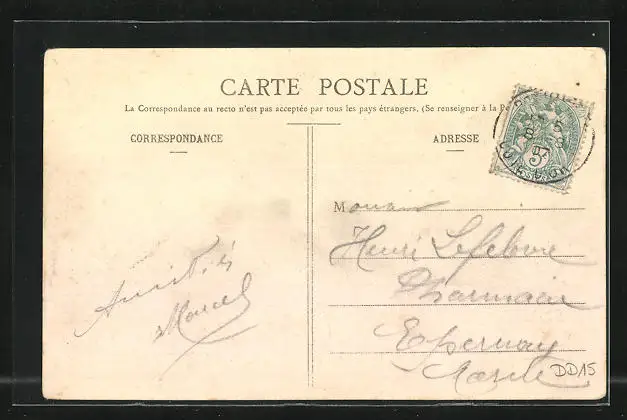 CARTE POSTALE
La Correspondance au recto n'est pas acceptée par tous les pays étrangers. (Se renseigner à la
CORRESPONDANCE
ADRESSE
Monsieur
Henri Lefebvre
Pharmacien
Epernay
Marne
Amitiés
Marcel
5
DD15